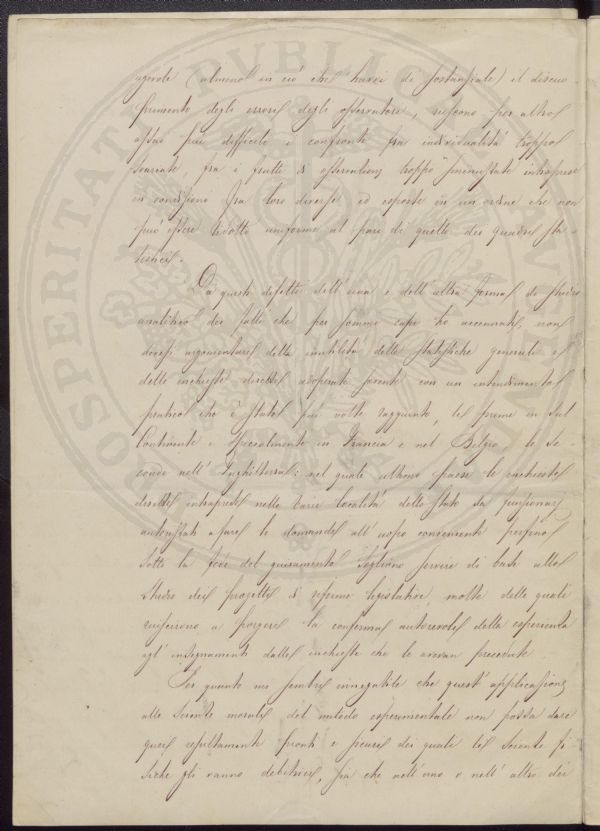 agevole (almeno in ciò che havvi di sostanziale) il discuo-
primento degli errori degli osservatori, riescono per altro
assai più difficili i confronti fra individualità troppo
svariate, fra i frutti di osservazioni troppo sminuzzate intraprese
in condizioni fra loro diverse ed esposte in un ordine che non
può essere ridotto uniforme al pari di quello dei quadri sta-
tistici.
Da questi difetti dell'una e dell'altra forma di studio
analitico dei fatti che per sommi capi ho accennati, non
devesi argomentare della inutilità delle statistiche generali e
delle inchieste dirette adoperate sovente con un intendimento
pratico che è stato più volte raggiunto, le prime in sul
Continente e specialmente in Francia e nel Belgio, le se-
conde nell'Inghilterra: nel quale ultimo paese le inchieste
dirette intraprese nelle varie località dello Stato da funzionarj
autorizzati a fare le domande all'uopo convenienti perfino
sotto la fede del giuramento sogliono servire di base allo
studio dei progetti di riforme legislative, molte delle quali
riuscirono a porgere la conferma autorevole della esperienza
agl'insegnamenti dalle inchieste che le avean precedute
Per quanto mi sembri innegabile che quest'applicazione
alle scienze morali del metodo esperimentale non possa dare
quei risultamenti pronti e sicuri dei quali le scienze fi-
siche gli vanno debitrici, sia che nell'uno o nell'altro dei